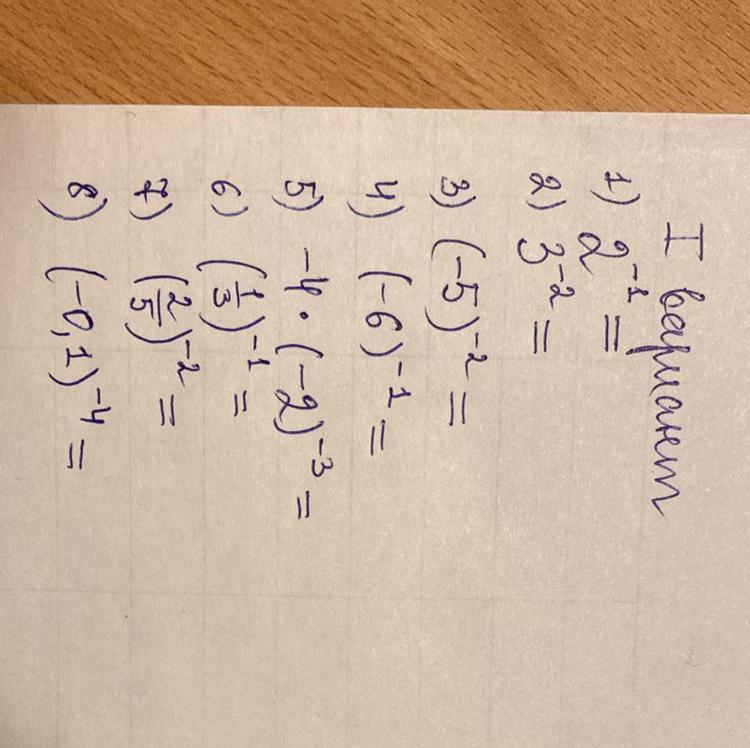 I вариант
1) 2⁻¹ =
2) 3⁻² =
3) (-5)⁻² =
4) (-6)⁻¹ =
5) -4 · (-2)⁻³ =
6) (1/3)⁻¹ =
7) (2/5)⁻² =
8) (-0,1)⁻⁴ =